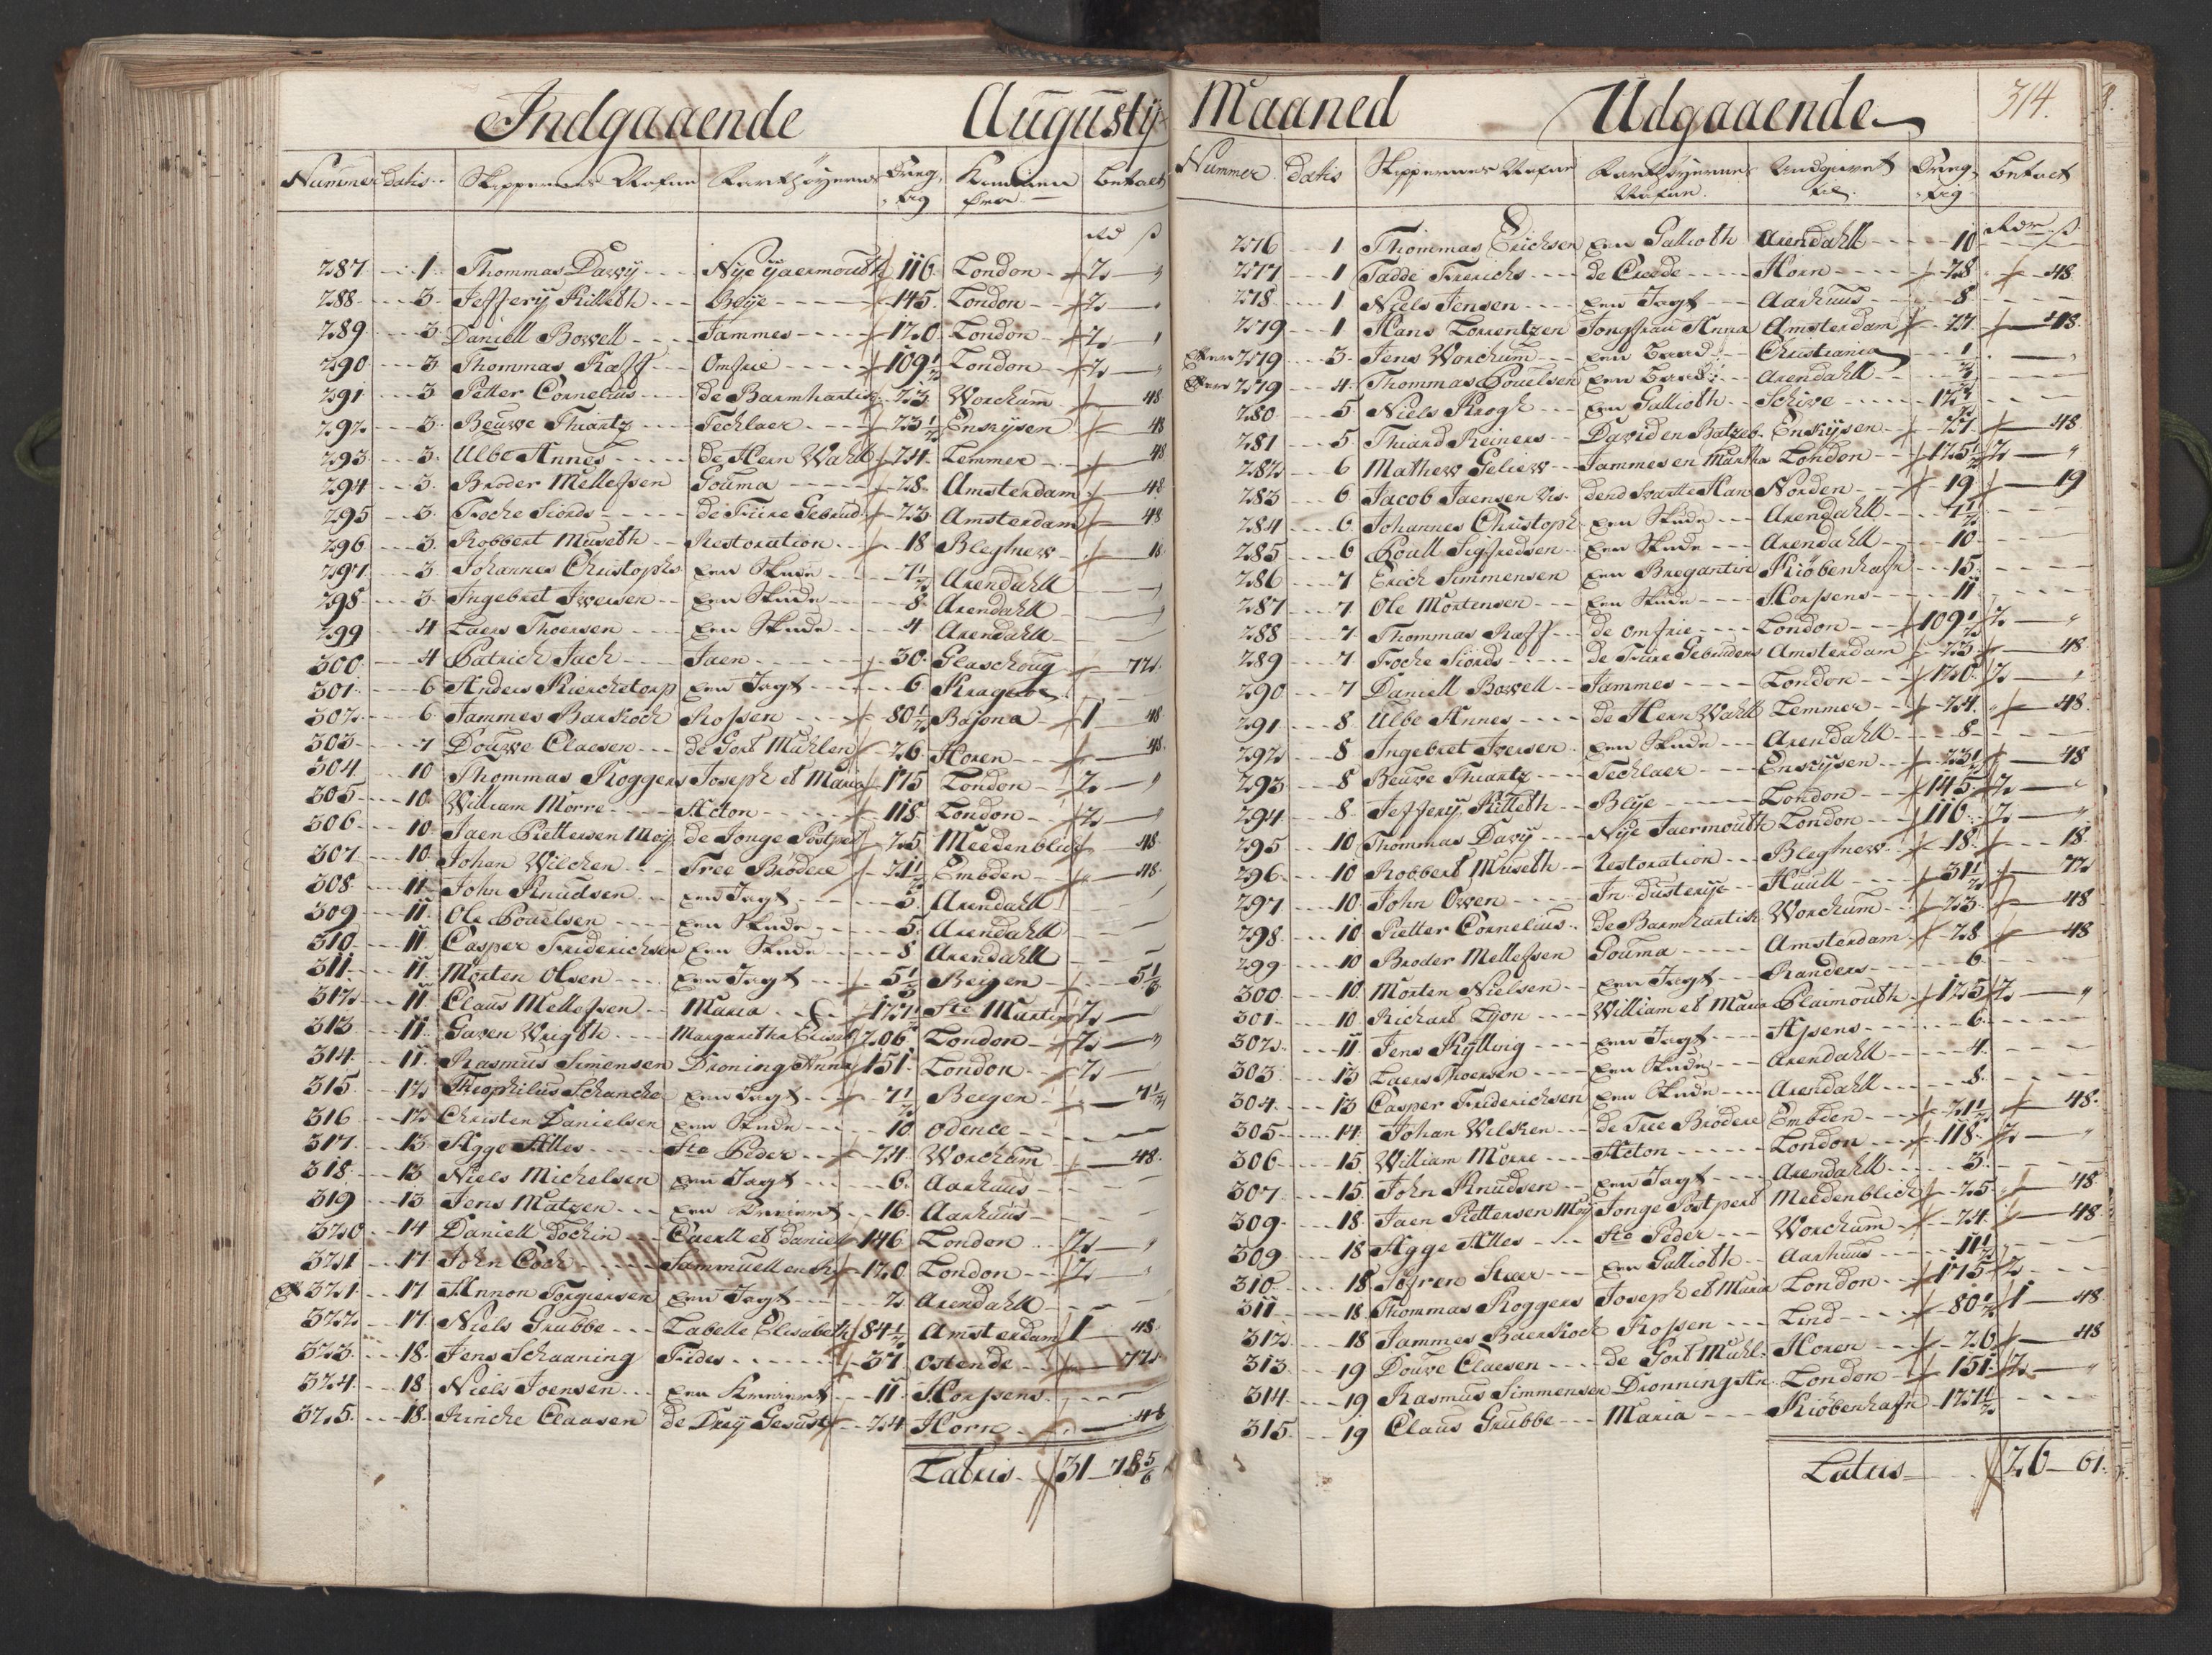 Indgaaende Augusty
Nummer datis Skippernes Nafne Farthøyernes Dreg,, Kommen betalt
tig fra
Rd ß
287 1 Thommas Davvy Nye Yaermouth 116 London 2 "
288 3 Jeffery Killeth Blye 145 London 2
289 3 Daniell Bowell Jammes 120 London 2
290 3 Thommas Raff Omfrie 109½ London 2 "
291 3 Petter Cornelius de Barmhartik 23 Worckum 48
292 3 Beuwe Thiantz Techlaer 23½ Enskysen 48
293 3 Ulbe Annes de Hern Wahll 24 Lemmer 48
294 3 Broder Mellefsen Gouma 28 Amsterdam 48
295 3 Focke Siords de Fiire Gebrud 23 Amsterdam 48
296 3 Robbert Museth Restoration 18 Blegfnew 18
297 3 Johannes Christophs een Skude 7½ Arendahll
298 3 Ingebret Iwersen een Skude 8 Arendahll
299 4 Laers Thoersen een Skude 4 Arendahll
300 4 Patrich Jach Jaen 30 Glaschoug 72
301 6 Anders Kierchetorp een Jagt 6 Kragerøe
302 6 Jammes Barskoch Rossen 80½ Bajona 1 48
303 7 Douwe Claesen de Gort Muhlen 26 Horen 48
304 10 Thommas Roggers Joseph et Maria 175 London 2 "
305 10 William Morre Acton 118 London 2 "
306 10 Jaen Piettersen Moy de Jonge Postpert 25 Meedenblick 48
307 10 Johan Wilcken Tree Brödere 21½ Embden 48
308 11 John Knudsen een Jagt 3 Arendahll
309 11 Ole Pouelsen een Skude 5 Arendahll
310 11 Casper Friderichsen Een Skude 8 Arendahll
311 11 Morten Olsen een Jagt 5⅓ Bergen 5⅓
312 11 Claus Mellefsen Maria 121½ Ste Martin 2
313 11 Gaven Wrigth Margaretha Elisab 206 London 2 "
314 11 Rasmus Simensen Droning Anna 151 London 2
315 12 Theophilus Schancke een Jagt 7½ Bergen 7½
316 12 Christen Danielsen een Skude 10 Odence
317 13 Agge Alles Ste Peder 24 Worckum 48
318 13 Niels Michelsen een Jagt 6 Aarhuus
319 13 Jens Matzen een Kreiert 16 Aarhuus
320 14 Daniell Dochin Caerll et Daniell 146 London 2 "
321 17 John Cock Sammuell en R 120 London 2
321 17 Annon Torgiersen een Jagt 2 Arendahll
322 17 Niels Grubbe Labelle Elisabeth 84½ Amsterdam 1 48
323 18 Jens Schaaning Fides 37 Ostende 72
324 18 Niels Joensen een Kreiert 11 Horssens
325 18 Rincke Claasen de Drey Gesusts 24 Horn 48
Latus 31 78⅚
Maaned Udgaaende 314.
Nummer datis Skippernes Nafne Farthøyernes Uudgaret Dreg, betalt
Nafne til tig
Rdr ß
276 1 Thommas Erichsen een Gallioth Arendahll 10
277 1 Tadde Frerichs de Eerde Horn 28 48
278 1 Niels Jensen een Jagt Aarhuus 8
279 1 Hans Lorrentzen Jongfrau Anna Amsterdam 27 48
279 3 Jens Worckum een Baad Christiania 1
279 4 Thommas Pouelsen een Baad Arendahll
280 5 Niels Krogh een Gallioth Schive 12½
281 5 Thiard Reiners David en Batzeb Enskysen 27 48
282 6 Mathew Geliew Jammes en Martha London 125½ 2 "
283 6 Jacob Jaensen Vis dend Svartte Han Norden 19 19
284 6 Johannes Christoph een Skude Arendahll 7½
285 6 Poull Sigfredsen een Skude Arendahll 10
286 7 Erich Simmensen een Bregantin Kiöbenhafn 15
287 7 Ole Mortensen een Skude Horssens 11
288 7 Thommas Raff de Omfrie London 109½ 2 "
289 7 Focke Siords de Fiire Gebruders Amsterdam 23 48
290 7 Daniell Bowell Jammes London 120 2
291 8 Ulbe Annes de Hern Wahll Lemmer 24 48
292 8 Ingebret Iversen een Skude Arendahll 8
293 8 Beuve Thiantz Techlaer Enskysen 23½ 48
294 8 Jeffery Killeth Blye London 145 2 "
295 10 Thommas Davy Nye Jaermouth London 116 2 "
296 10 Robbert Museth Restoration Blegfnew 18 18
297 10 John Owen In dusterye Huull 31½ 72
298 10 Pietter Cornelius de Barmhartik Worckum 23 48
299 10 Broder Mellefsen Gouma Amsterdam 28 48
300 10 Morten Nielsen een Jagt Randers 6
301 10 Richart Tyon William et Maria Plaimouth 125 2 "
302 11 Jens Kylling een Jagt Assens 6
303 13 Laers Thoersen een Skude Arendahll 4
304 13 Casper Friderichsen een Skude Arendahll 8
305 14 Johan Wilsken de Tree Brödere Embden 21½ 48
306 15 William Morre Acton London 118 2 "
307 15 John Knudsen een Jagt Arendahll 3
309 18 Jaen Piettersen Moy Jonge Postpert Meedenblick 25 48
309 18 Agge Alles Ste Peder Worckum 24 48
310 18 Söfren Skaer een Gallioth Aarhuus 11½
311 18 Thommas Roggers Joseph et Maria London 175 2
312 18 Jammes Baerskoch Rossen Lind 80½ 1 48
313 19 Douve Claesen de Gort Muhl. Horen 26 48
314 19 Rasmus Simmensen Dronning An London 151 2 "
315 19 Claus Grubbe Maria Kiöbenhafn 121½
Latus 26 61